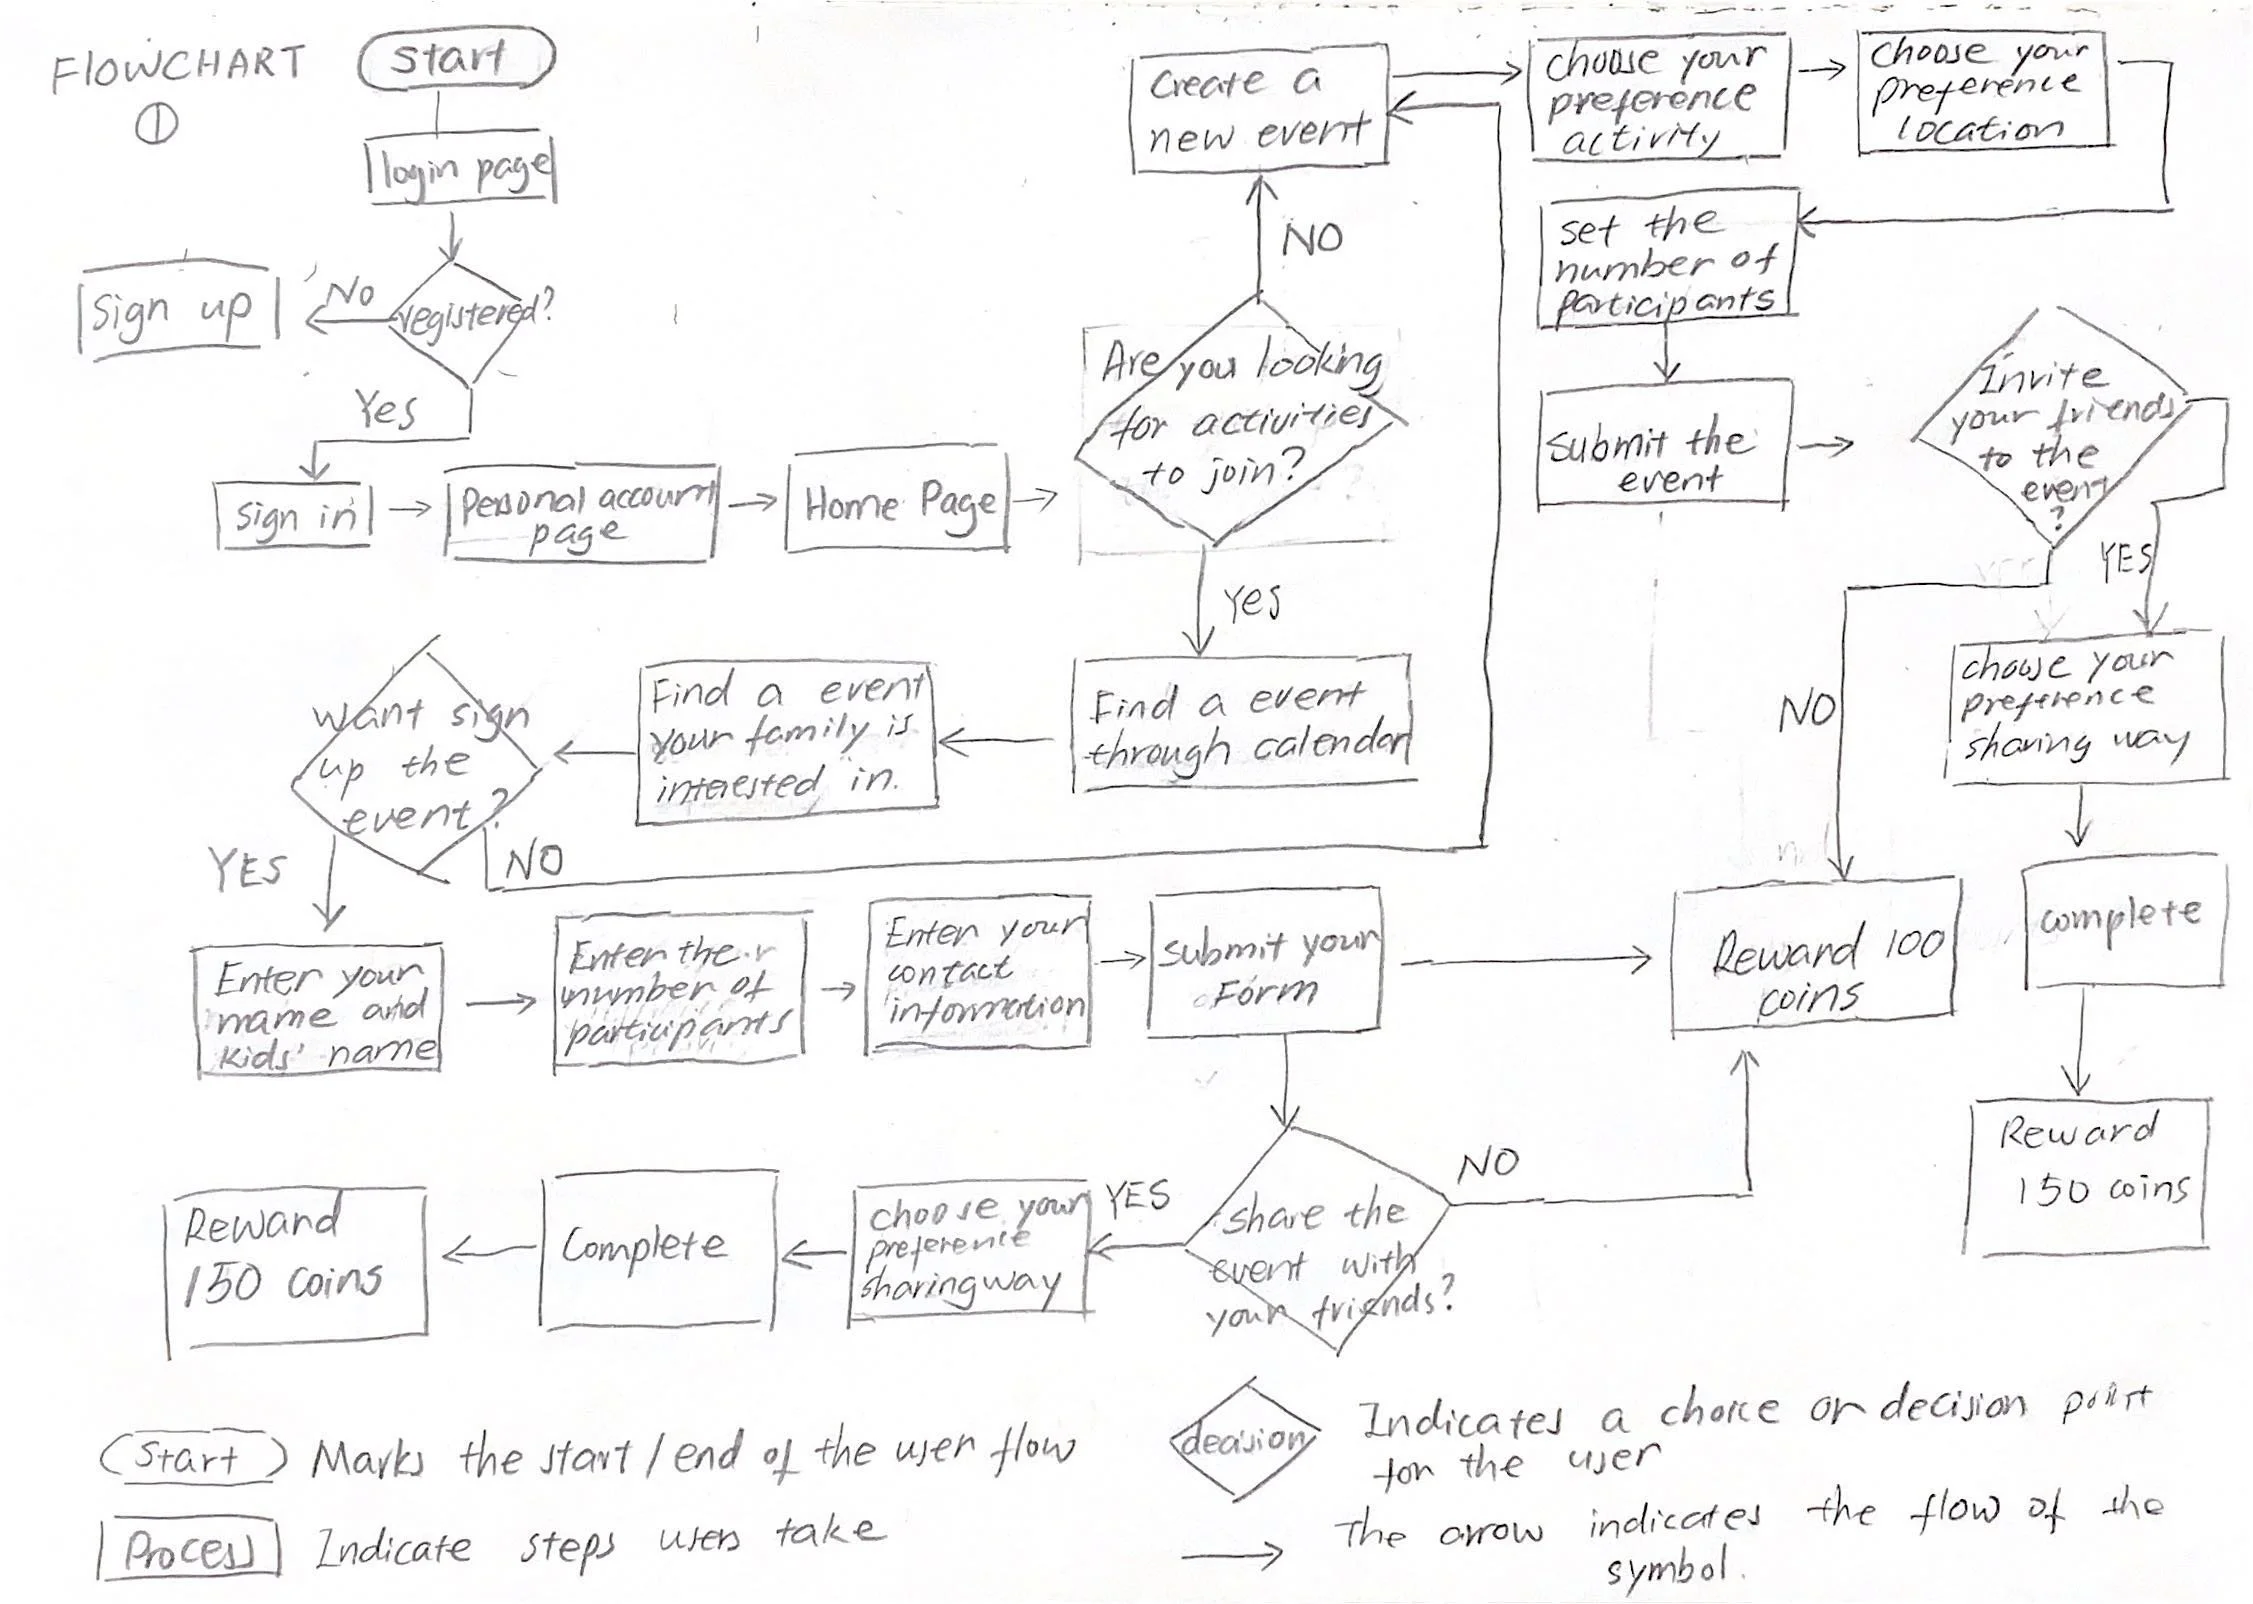 FLOWCHART
①
Start
login page
registered?
No
Sign up
Yes
Sign in
Personal account
page
Home Page
Are you looking
for activities
to join?
NO
Create a
new event
choose your
preference
activity
choose your
preference
location
set the
number of
participants
submit the
event
Invite
your friends
to the
event
?
YES
NO
choose your
preference
sharing way
complete
Reward
150 coins
Yes
Find a event
through calendar
Find a event
your family is
interested in.
want sign
up the
event?
NO
YES
Enter your
name and
kids' name
Enter the
number of
participants
Enter your
contact
information
submit your
Form
Reward 100
coins
share the
event with
your friends?
NO
YES
choose your
preference
sharing way
Complete
Reward
150 coins
Start Marks the start/end of the user flow
Process Indicate steps users take
decision Indicates a choice or decision point
for the user
The arrow indicates the flow of the
symbol.